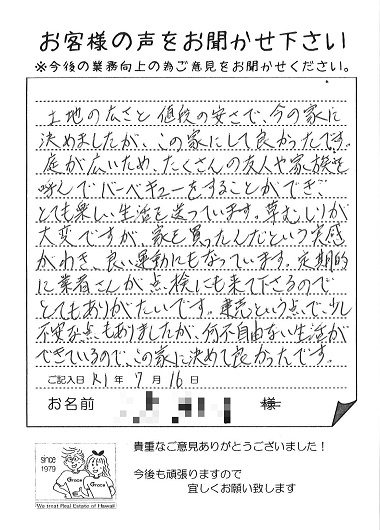 お客様の声をお聞かせ下さい
※今後の業務向上の為ご意見をお聞かせください。
土地の広さと値段の安さで、今の家に
決めましたが、この家にして良かったです。
庭が広いため、たくさんの友人や家族を
呼んでバーベキューをすることができ
とても楽しい生活を送っています。草むしりが
大変ですが、家を買ったんだという実感
がわき、良い運動にもなっています。定期的
に業者さんが点検にも来て下さるので
とてもありがたいです。中古という点で、少し
不安な点もありましたが、何不自由ない生活が
できているので、この家に決めて良かったです。
ご記入日 R1年 7月 16日
お名前 様
since
1979
Grace
Grace
We treat Real Estate of Hawaii
貴重なご意見ありがとうございました！
今後も頑張りますので
宜しくお願い致します